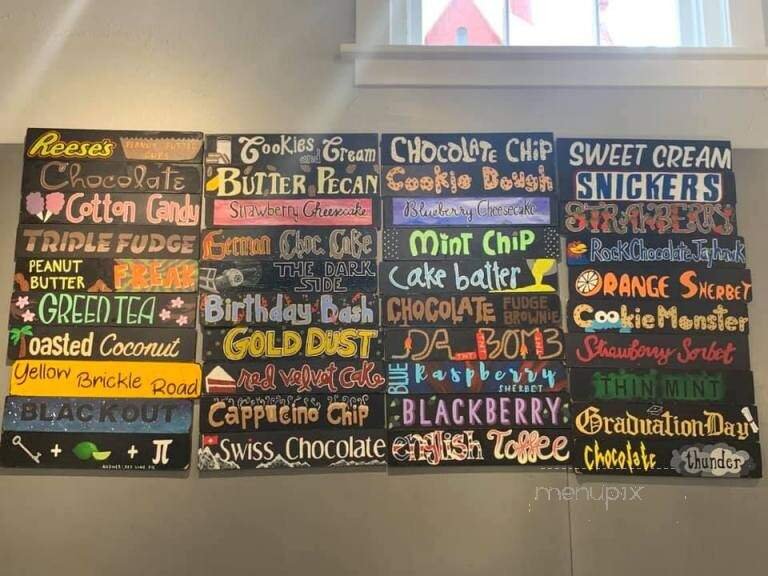 Reese's PEANUT BUTTER CUPS
Chocolate
Cotton Candy
TRIPLE FUDGE
PEANUT BUTTER FREAK
GREEN TEA
Toasted Coconut
Yellow Brickle Road
BLACKOUT
+ + π
Cookies and Cream
BUTTER PECAN
Strawberry Cheesecake
German Choc. Cake
THE DARK SIDE
Birthday Bash
GOLD DUST
red velvet Cake
Cappucino Chip
Swiss Chocolate
CHOCOLATE CHIP
Cookie Dough
Blueberry Cheesecake
MINT CHIP
Cake batter
CHOCOLATE FUDGE BROWNIE
DA BOMB
BLUE Raspberry SHERBET
BLACKBERRY
english Toffee
SWEET CREAM
SNICKERS
STRAWBERRY
Rock Chocolate Jayhawk
ORANGE SHERBET
Cookie Monster
Strawberry Sorbet
THIN MINT
Graduation Day
Chocolate thunder
menupix